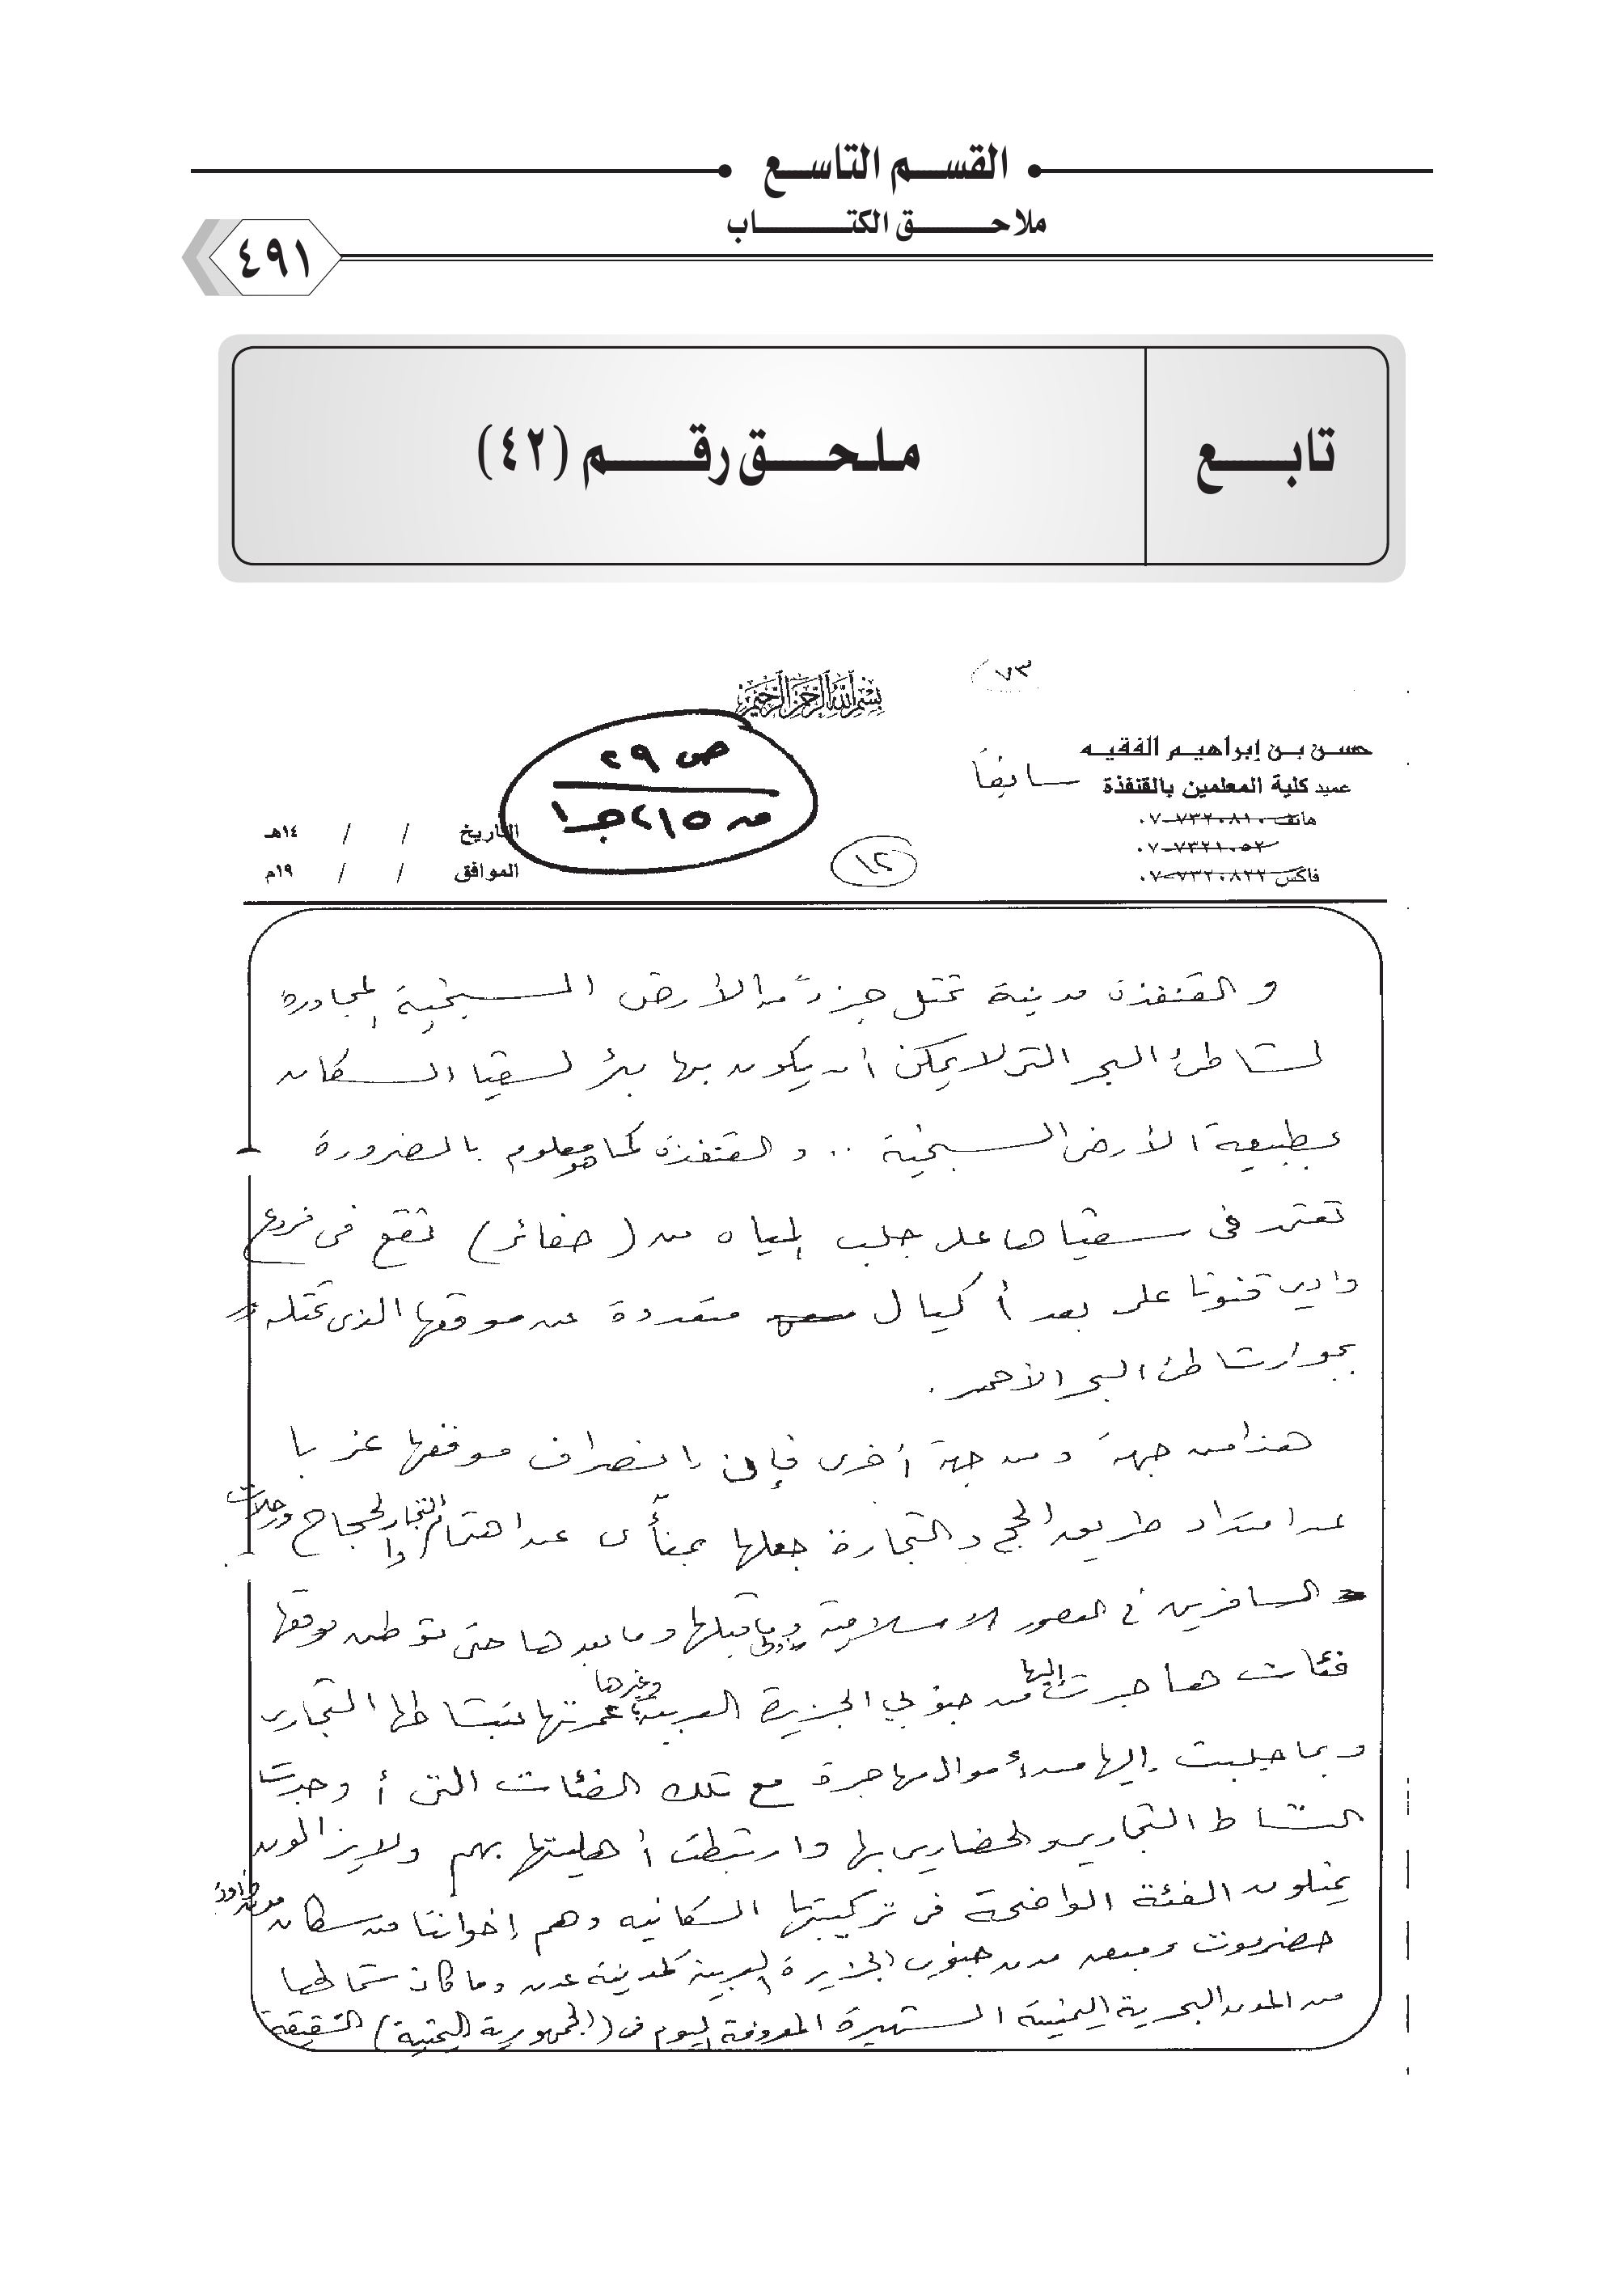 القسم التاسع
ملاحق الكتاب
٤٩١
تابع
ملحق رقم (٤٢)
٧٣
بسم الله الرحمن الرحيم
حسن بن إبراهيم الفقيه
عميد كلية المعلمين بالقنفذة سابقاً
هاتف ٧٣٢٠٨١٠-٠٧
٧٣٢١٠٥٢-٠٧
فاكس ٧٣٢٠٨٢٢-٠٧
ص ٢٩
من ٢١٥ جـ١
١٢
التاريخ / / ١٤هـ
الموافق / / ١٩م
والقنفذة مدينة تحتل جزءً من الأرض السبخية المجاورة
لشاطئ البحر التي لا يمكن أن يكون بها بئر لسقيا السكان
بطبيعة الأرض السبخية .. والقنفذة كما هو معلوم بالضرورة
تعتمد في سقياها على جلب المياه من (حفائر) تقع في فروع
وادي قنونا على بعد أكيال متعددة عن موقعها الذي تحتله
بجوار شاطئ البحر الأحمر.
هذا من جهة ومن جهة أخرى فإن انصراف موقعها غربا
عن امتداد طريق الحج والتجارة جعلها بمنأى عن اهتمام التجار والحجاج ورحلات
المسافرين في العصور الاسلامية وما قبلها وما بعدها حتى توطن موقعها
فئات هاجرت إليها من جنوبي الجزيرة العربية وغيرها عمرتها بنشاطها التجاري
وبما جلبت إليها من أموال مهاجرة مع تلك الفئات التي أوجدت
النشاط التجاري والحضاري بها وارتبطت أهليتها بهم ولا يزالون
يمثلون الفئة الواضحة في تركيبتها السكانيه وهم إخواننا من سكان مدن
حضرموت وبعض مدن جنوب الجزيرة العربية كمدينة عدن وما كان شمالها
من المدن البحرية اليمنية الشهيرة المعروفة اليوم في (الجمهورية اليمنية) الشقيقة